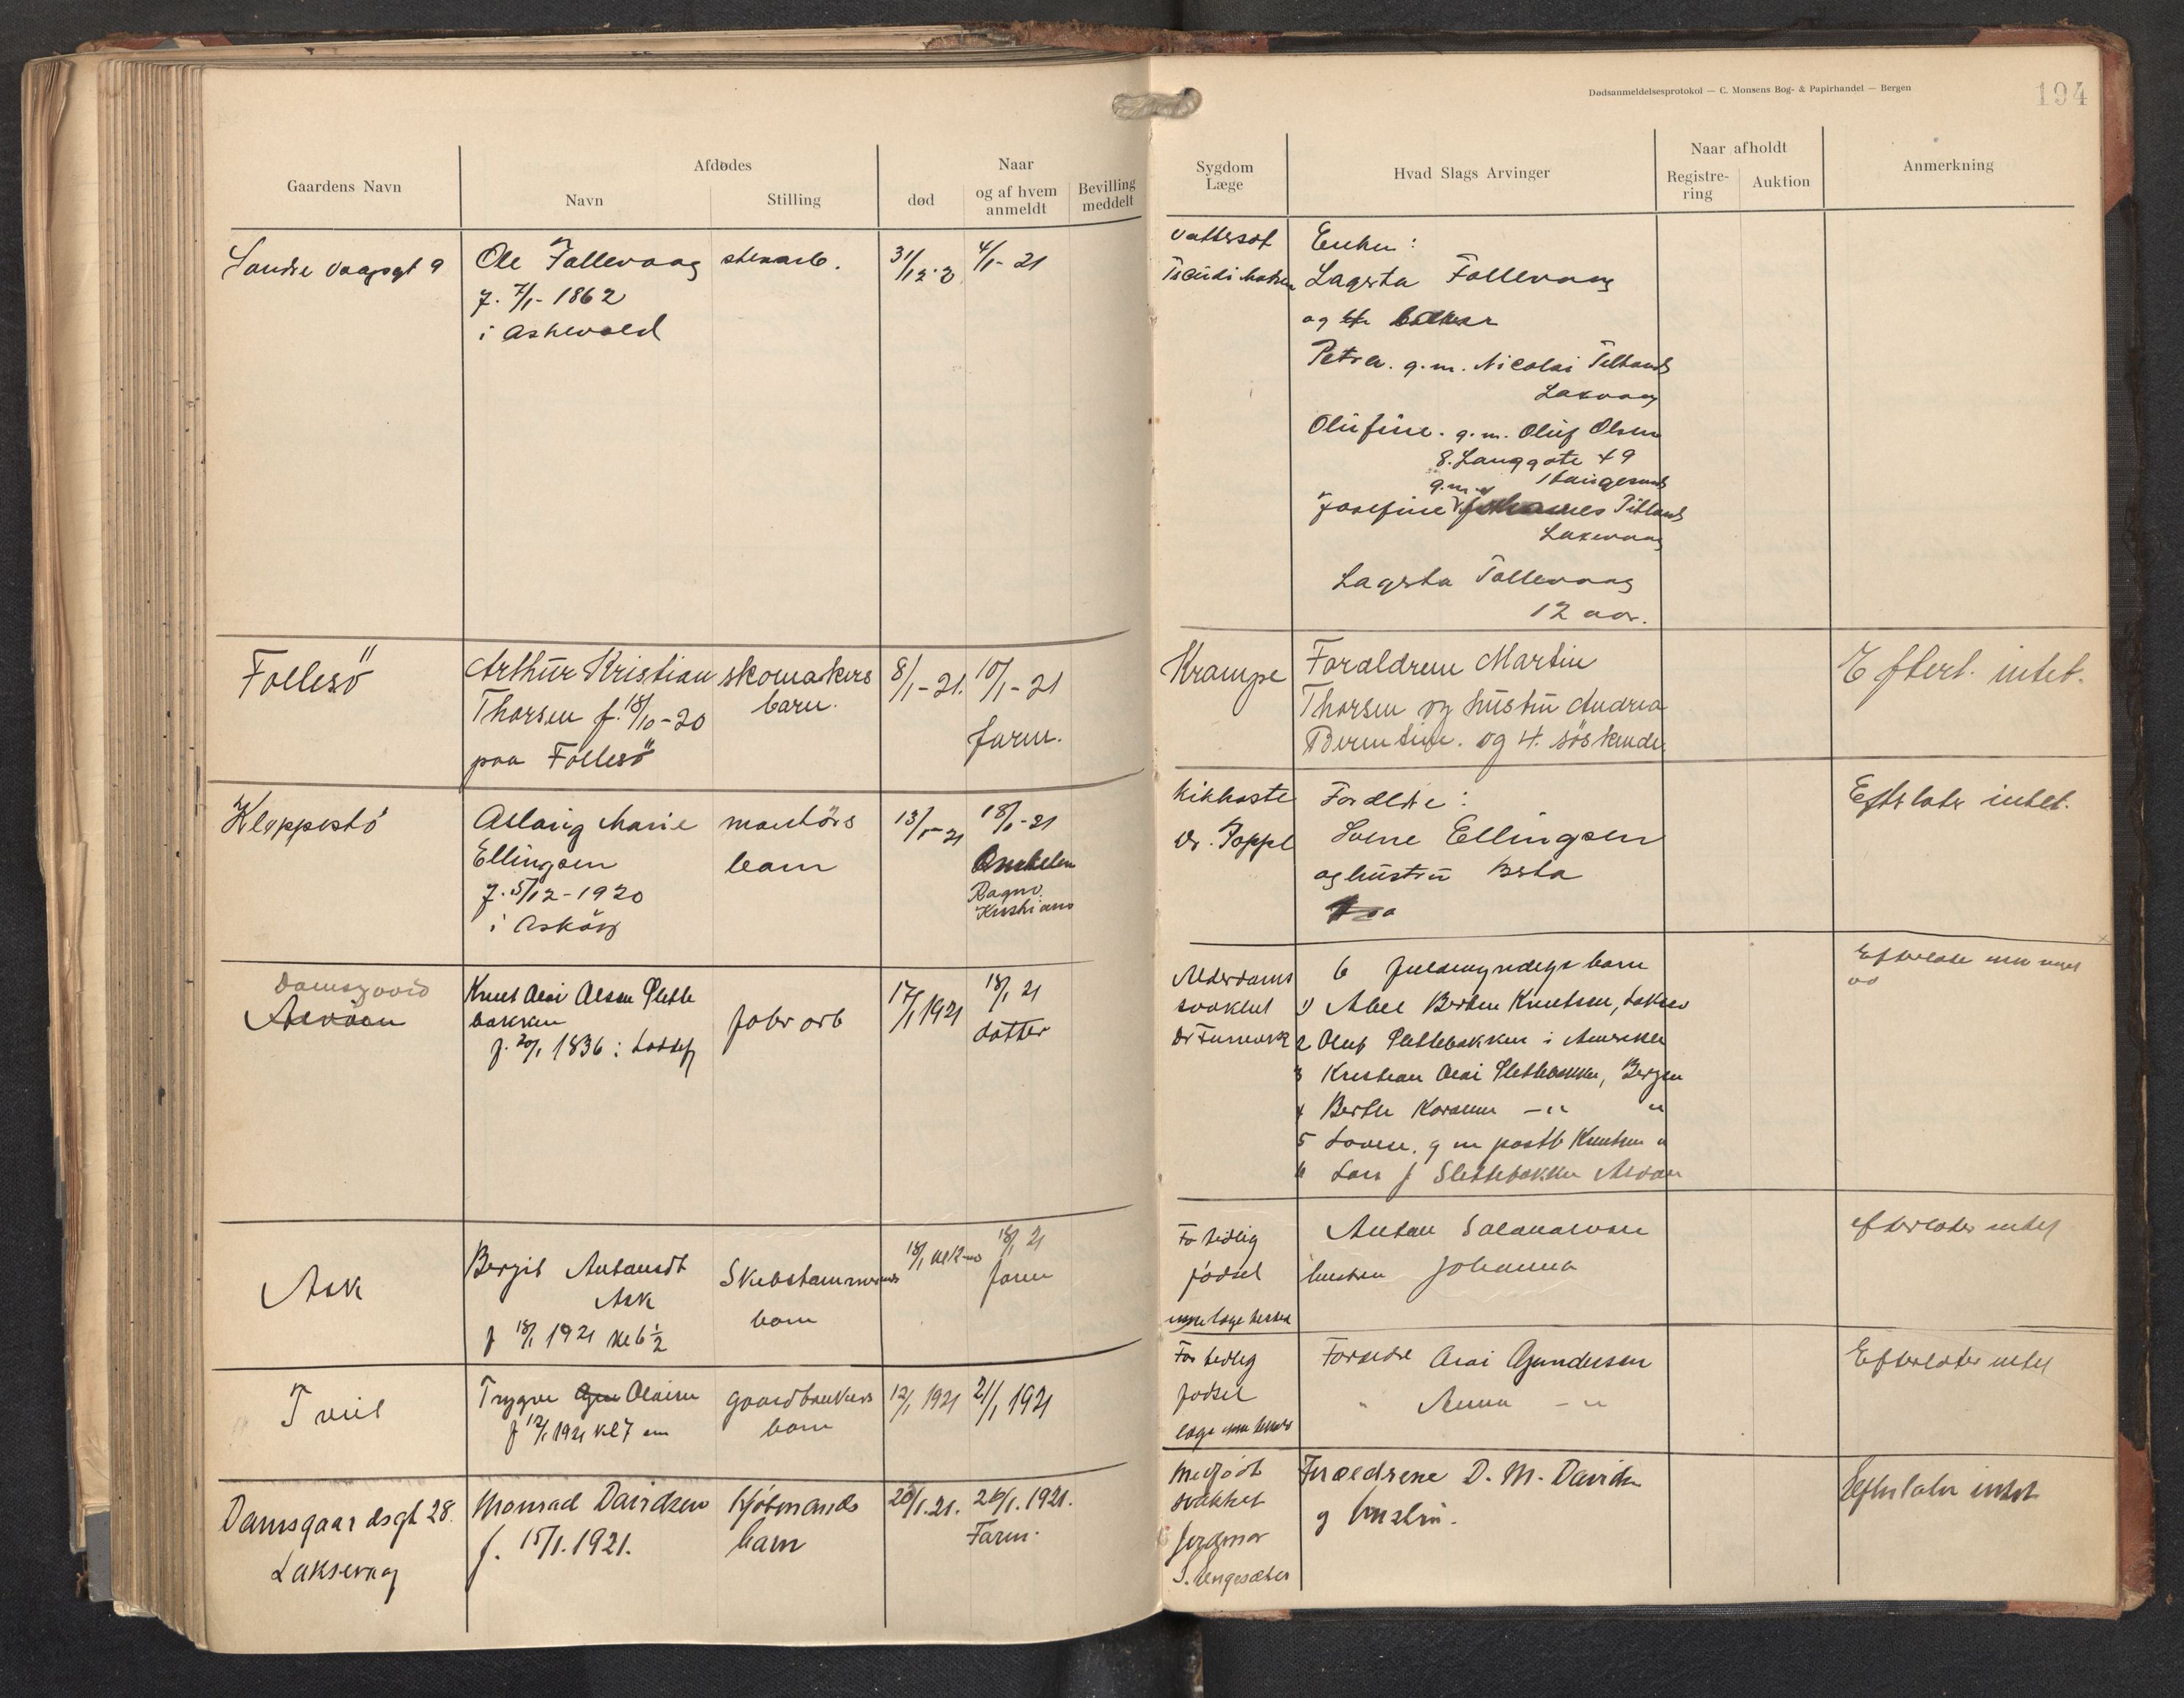 Dødsanmeldelsesprotokol — C. Monsens Bog- & Papirhandel — Bergen
194
Gaardens Navn
Afdødes
Navn
Stilling
Naar
død
og af hvem anmeldt
Bevilling meddelt
Sygdom
Læge
Hvad Slags Arvinger
Naar afholdt
Registre-
ring
Auktion
Anmerkning
Søndre Vaagsgt 9
Ole Follevaag
f. 7/1- 1862
i Askevold
stenarb.
31/12-20
4/1- 21
Vattersot
Enken :
Lagerta Follevaag
og
Petra. g.m. Nicolai
Laxevaag
Olufine. g.m. Oluf Olsen
8. Langgate 49
Haugesund
g.m.
Josefine Johannes
Laxevaag
Lagerta Follevaag
12 aar.
Follesö
Arthur Kristian
Thorsen f. 18/10-20
paa Follesö
skomakers
barn.
8/1-21.
10/1-21
farm.
Krampe
Forældrene Martin
Thorsen og hustru Andrea
Berntine. og 4. söskende
Efterl. intet.
Kleppestö
Aslaug Marie
Ellingsen
f. 5/12-1920
i Asköy
montörs
barn
13/1-21
18/1-21
Onkelen
Ragnv.
Kikhoste
Dr. Joppe
Forældre :
Ellingsen
og hustru Berta
Efterlater intet.
Damsgaard
Alvöen
Knut Olai Olsen Slette
bakken
f. 20/1 1836 i
17/1 1921
18/1 21
datter
Alderdoms
svakhet
6 fuldmyndige barn
1) Abel Bertin Knutsen,
2 Oluf Slettebakken i Amerika
3 Kristian Olai Slettebakken, Bergen
4 Berthe Karoline -"- "
5 g m postb Knutsen "
6 Lars J Slettebakken Alvöen
Ask
Bergit Antonsdt
Ask
f 18/1 1921 kl 6½
barn
18/1
18/1 21
farm
For tidlig
fødsel
Anton Salomonsen
hustru Johanna
efterlater intet
Tveit
Trygve Olaisen
f 12/1 1921 kl 7 em
gaardbrukers
barn
12/1 1921
21/1 1921
For tidlig
fødsel
Forældre Olai Gundersen
" Anna -"-
Efterlater intet
Damsgaardsgt 28.
Laksevaag
Monrad Davidsen
f. 15/1.1921.
Kjøbmands
barn
20/1.21.
26/1.1921.
Farm.
Medfødt
svakhet
Jordmor
S. Ungesæter
Forældrene D. M. Davidsen
og hustru.
Efterlater intet